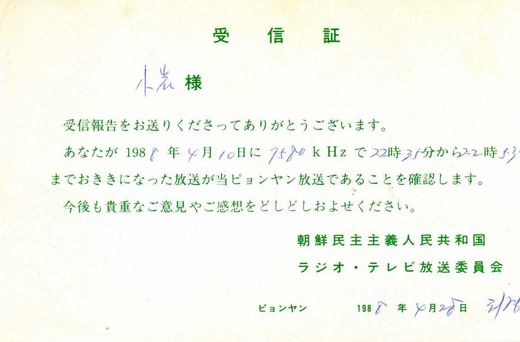 受信証
小岩様
受信報告をお送りくださってありがとうございます。
あなたが1988年4月10日に7580kHzで22時35分から22時53
までおききになった放送が当ピョンヤン放送であることを確認します。
今後も貴重なご意見やご感想をどしどしおよせください。
朝鮮民主主義人民共和国
ラジオ・テレビ放送委員会
ピョンヤン 1988年4月28日